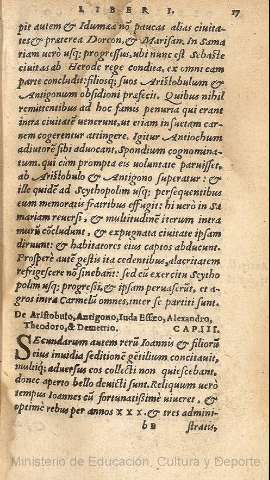 LIBER I. 17
pit autem & Idumææ nō paucas alias ciuita-
tes & præterea Doreon, & Marisan. In Sama
riam uerò usq; progressus, ubi nunc est Sebaste
ciuitas ab Herode rege condita, ex omni eam
parte concludit: filiosq; suos Aristobulum &
Antigonum obsidioni præfecit. Quibus nihil
remittentibus ad hoc famis penuria qui erant
intra ciuitatē uenerunt, ut etiam insuetam car-
nem cogerentur attingere. Igitur Antiochum
adiutorē sibi aduocant, Spondium cognomina-
tum. qui cùm prompta eis uoluntate paruisset,
ab Aristobulo & Antigono superatur: &
ille quidē ad Scythopolim usq; persequentibus
eum memoratis fratribus effugit: hi uerò in Sa
mariam reuersi, & multitudinē iterum intra
murū cōcludunt, & expugnata ciuitate ipsam
diruunt: & habitatores eius captos abducunt.
Prosperè autē gestis ita cedentibus, alacritatem
refrigescere nō sinebant: sed cū exercitu Scytho
polim usq; progressi, & ipsam peruaserūt, et a-
gros intra Carmelū omnes, inter se partiti sunt.
De Aristobulo, Antigono, Iuda Essæo, Alexandro,
Theodoro, & Demetrio. CAP. III.
SEcundarum autem rerū Ioannis & filiorū
eius inuidia seditionē gētilium concitauit,
multiq; aduersus eos collecti non quiescebant,
donec aperto bello deuicti sunt. Reliquum uerò
tempus Ioannes cū fortunatissimè uiueret, &
optimè rebus per annos XXX. & tres admini-
bB stratis,
Ministerio de Educación, Cultura y Deporte